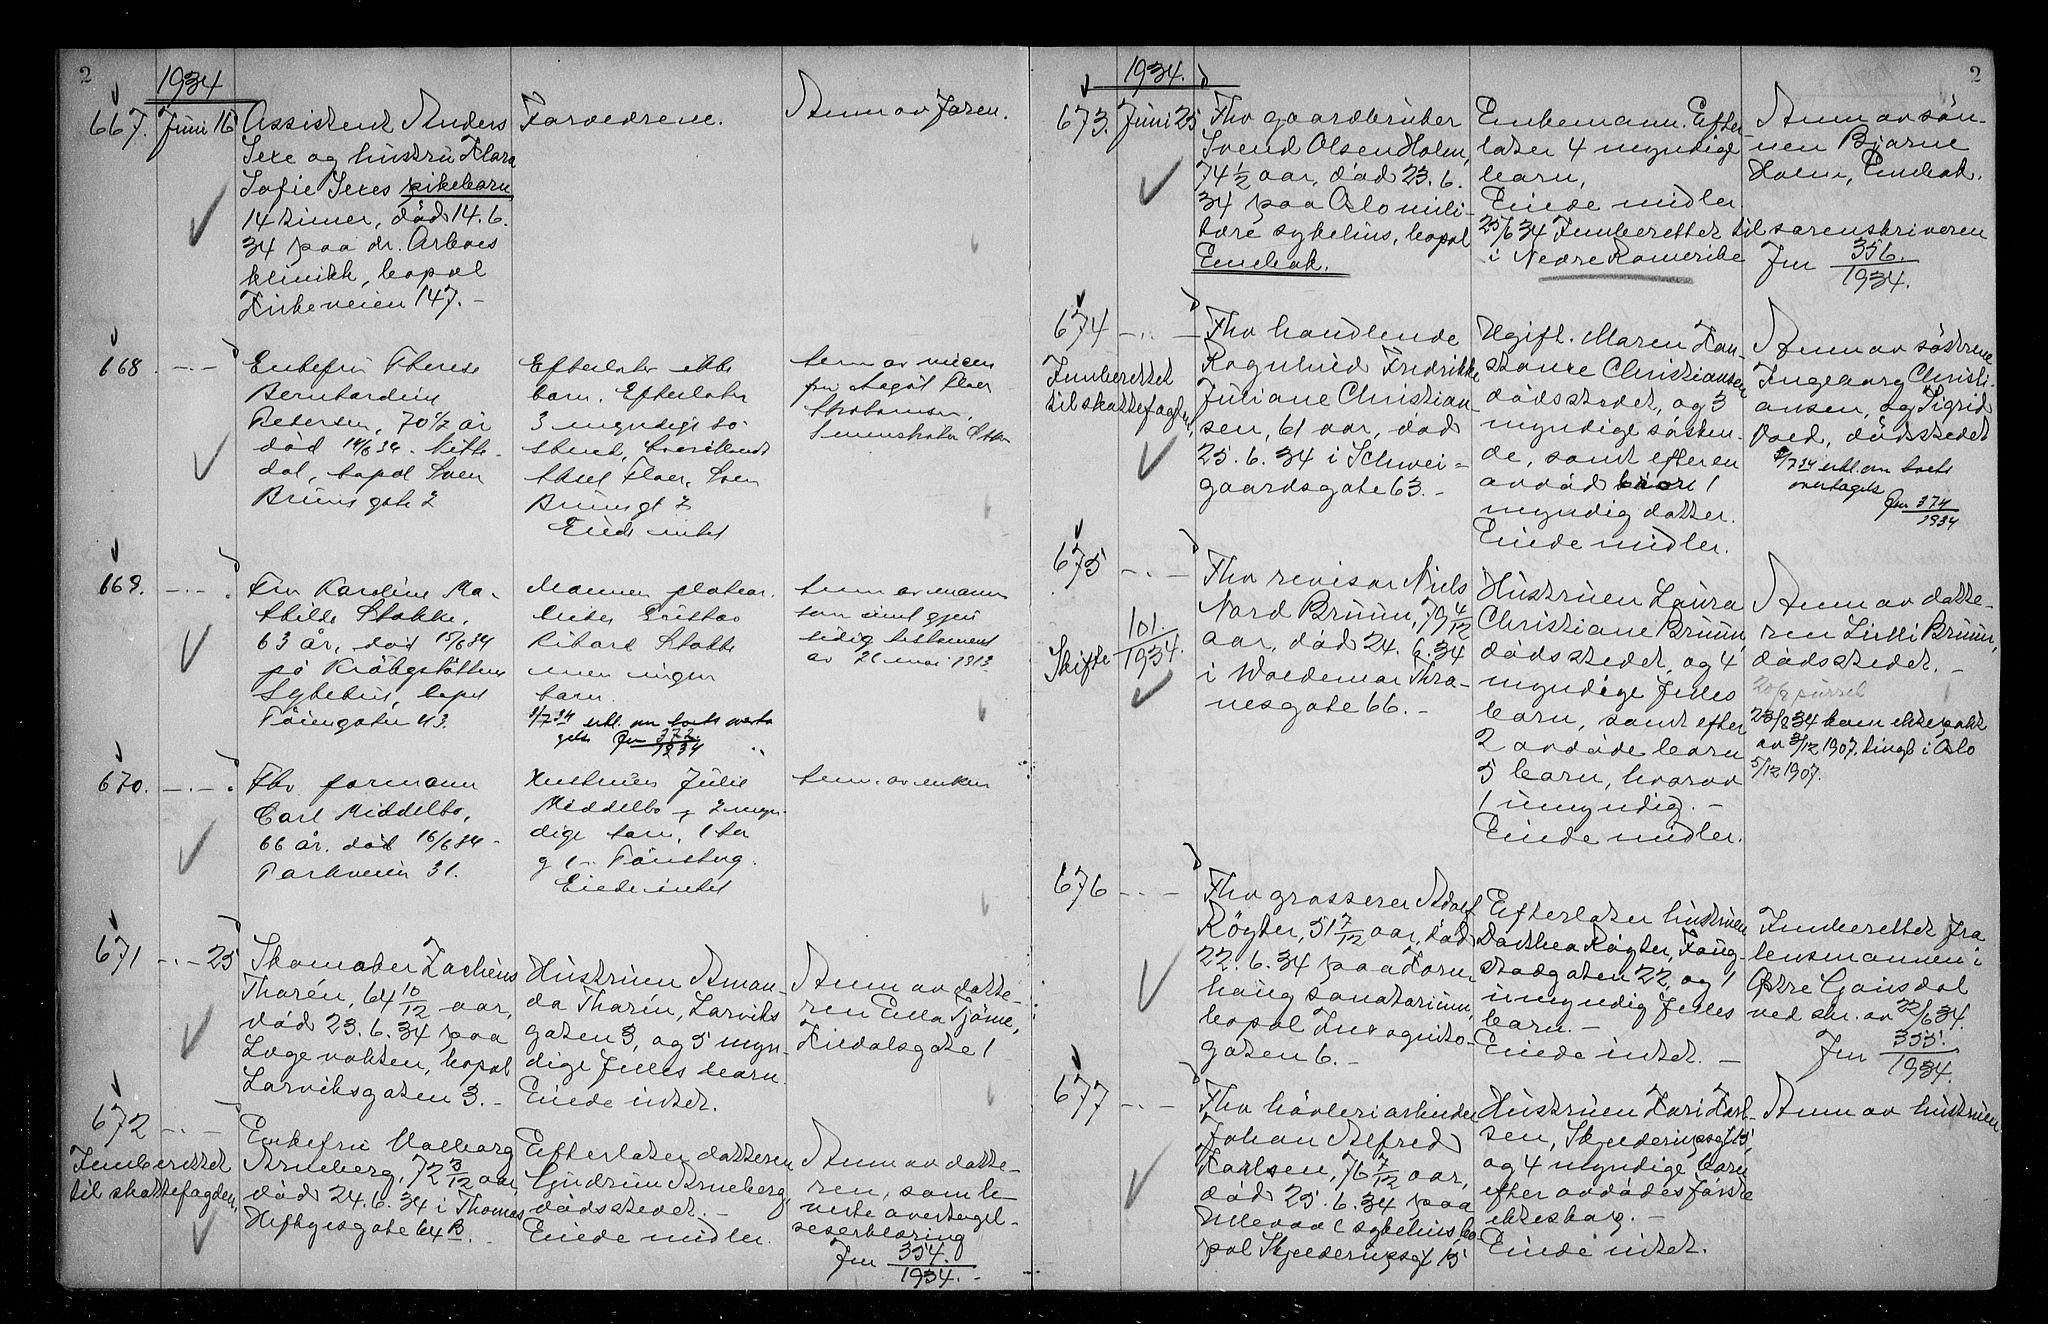 2
1934
667. Juni 16
Assistent Anders
Sexe og hustru Klara
Sofie Sexes pikebarn
14 timer, död 14.6.
34 paa dr. Arboes
klinikk, bopæl
Kirkeveien 147. -
Forældrene.
Anm av faren.
668. -..-
Enkefru Therese
Bernhardine
Petersen, 70 1/2 år
död 14/6 34. Nitte-
dal, bopel Sven
Bruns gate 2
Efterlater ikke
barn. Efterlater
3 myndige sö-
skend,
Sven
Brunsgt 2
Eiede intet
Anm av niesen
fru
669. -..-
Fru Karoline Ma-
thilde Stokke,
63 år, död 15/6 34
på Prökestöttens
Sykehus, bopel
Töiengaten 43.
Mannen
Rikard Stokke
men ingen
barn
2/7 34 erkl. om boets overta
gelse Jnr 372/1934
Anm av mannen
som innl gjen
sidig testament
av 21 mai 1913
670. -..-
Fhv formann
Carl Middelbo,
66 år, död 16/6 34 -
Parkveien 31.
Hustruen Julie
Middelbo og 2 myn-
dige barn, 1 bor
og 1 i Tönsberg.
Eiede intet
Anm. av enken
671 -..- 25
Skomaker Zacheus
Thorén, 64 10/12 aar,
död 23.6.34 paa
Lægevakten, bopæl
Larviksgaten 3. -
Hustruen Aman-
da Thorén, Larviks
gaten 3, og 5 myn-
dige fælles barn.
Eiede intet.
Anm av datte-
ren Ella Tjöme,
Fredalsgate 1
672 -..-
Innberettet
til skattefogden,
Enkefru Valborg
Arneberg, 72 3/12 aar,
död 24.6.34 i Thomas
Heftyesgate 64 B.
Efterlater datteren
Gudrun Arneberg,
dödsstedet. -
Eiede midler.
Anm av datte-
ren, som le-
verte overtagel-
seserklæring
Jnr 354./1934. -
2
1934.
673. Juni 25
Fhv gaardbruker
Svend Olsen Holm,
74 1/2 aar, död 23.6.
34 paa Oslo mili-
tære sykehus, bopæl
Enebak.
Enkemann. Efter-
later 4 myndige
barn,
Eiede midler.
25/6 34 Innberettet til sorenskriveren
i Nedre Romerike
Jnr 356./1934.
Anm av sön-
nen Bjarne
Holm, Enebak.
674 -..-
Innberettet
til skattefogden,
Fhv handlende
Ragnhild Fredrikke
Juliane Christian-
sen, 61 aar, död
25.6.34 i Schwei-
gaardsgate 63. -
Ugift. Maren Kon-
stanse Christiansen
dödsstedet, og 3
myndige södsken-
de, samt efter en
avdöd bror 1
myndig datter.
Eiede midler.
Anm av söstrene
Ingeborg Christi-
ansen, og Sigrid
Voed, dödsstedet
2/7 34 erkl. om boets
overtagelse
Jnr 374/1934
675 -..-
Skifte 101./1934.
Fhv revisor Niels
Nord Bruun, 79 4/12
aar, död 24.6.34
i Waldemar Thra-
nesgate 66. -
Hustruen Laura
Christiane Bruun,
dödsstedet, og 4
myndige fælles
barn, samt efter
2 avdöde barn
5 barn, hvorav
1 umyndig. -
Eiede midler.
Anm av datte-
ren Lulli Bruun,
dödsstedet. -
20/8 purret
23/8 34 kom ektepakt
av 3/12 1907. tingl i Oslo
5/12 1907.
676 -..-
Fhv grosserer Adolf
Röyter, 51 7/12 aar, död
22.6.34 paa Korn-
haug sanatorium,
bopæl Incognito-
gaten 6. -
Efterlater hustruen
Dorthea Röyter, Foug-
stadgaten 22, og 1
umyndig fælles
barn. -
Eiede intet. -
Innberettet fra
lensmannen i
Østre Gausdal
ved skr. av 22/6 34.
Jnr 355./1934.
677 -..-
Fhv hövleriarbeider
Johan Alfred
Karlsen, 76 7/12 aar,
död 25.6.34 paa
Ullevaal sykehus, bo
pæl Skjelderupsgt 15
Hustruen Kari Karl-
sen, Skjelderupsgt 15,
og 4 myndige barn
efter avdödes förste
ekteskap. -
Eiede intet.
Anm av hustruen